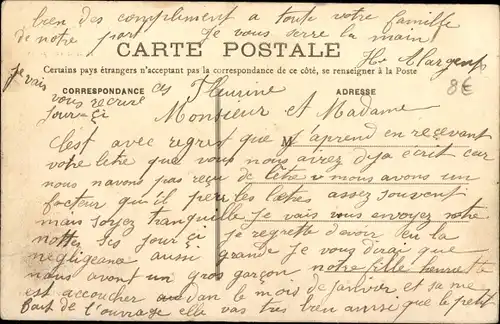 bien des compliment a toute votre famille
de notre part Je vous serre la main
CARTE POSTALE
Certains pays étrangers n'acceptent pas la correspondance de ce côté, se renseigner à la Poste
8€
je vais
CORRESPONDANCE
ADRESSE
vous recrire ces Fleurine
jour-çi Monsieur et Madame
C'est avec regret que j'aprend en reçevant
M
votre letre que vous nous avirez deja écrit car
nous navons pas reçu de lètre nous avons un
facteur qui il pers les lètres assez souvent
mais soyez tranquille je vais vous envoyez notre
nottes ces jour çi je regrette d'avoir eu la
négligeance aussi grande Je vous dirai que
nous avont un gros garçon notre fille henriette
est accoucher dan le mois de janvier et sa me
fait de l'ouvrage elle vas bien ainsi que le petit